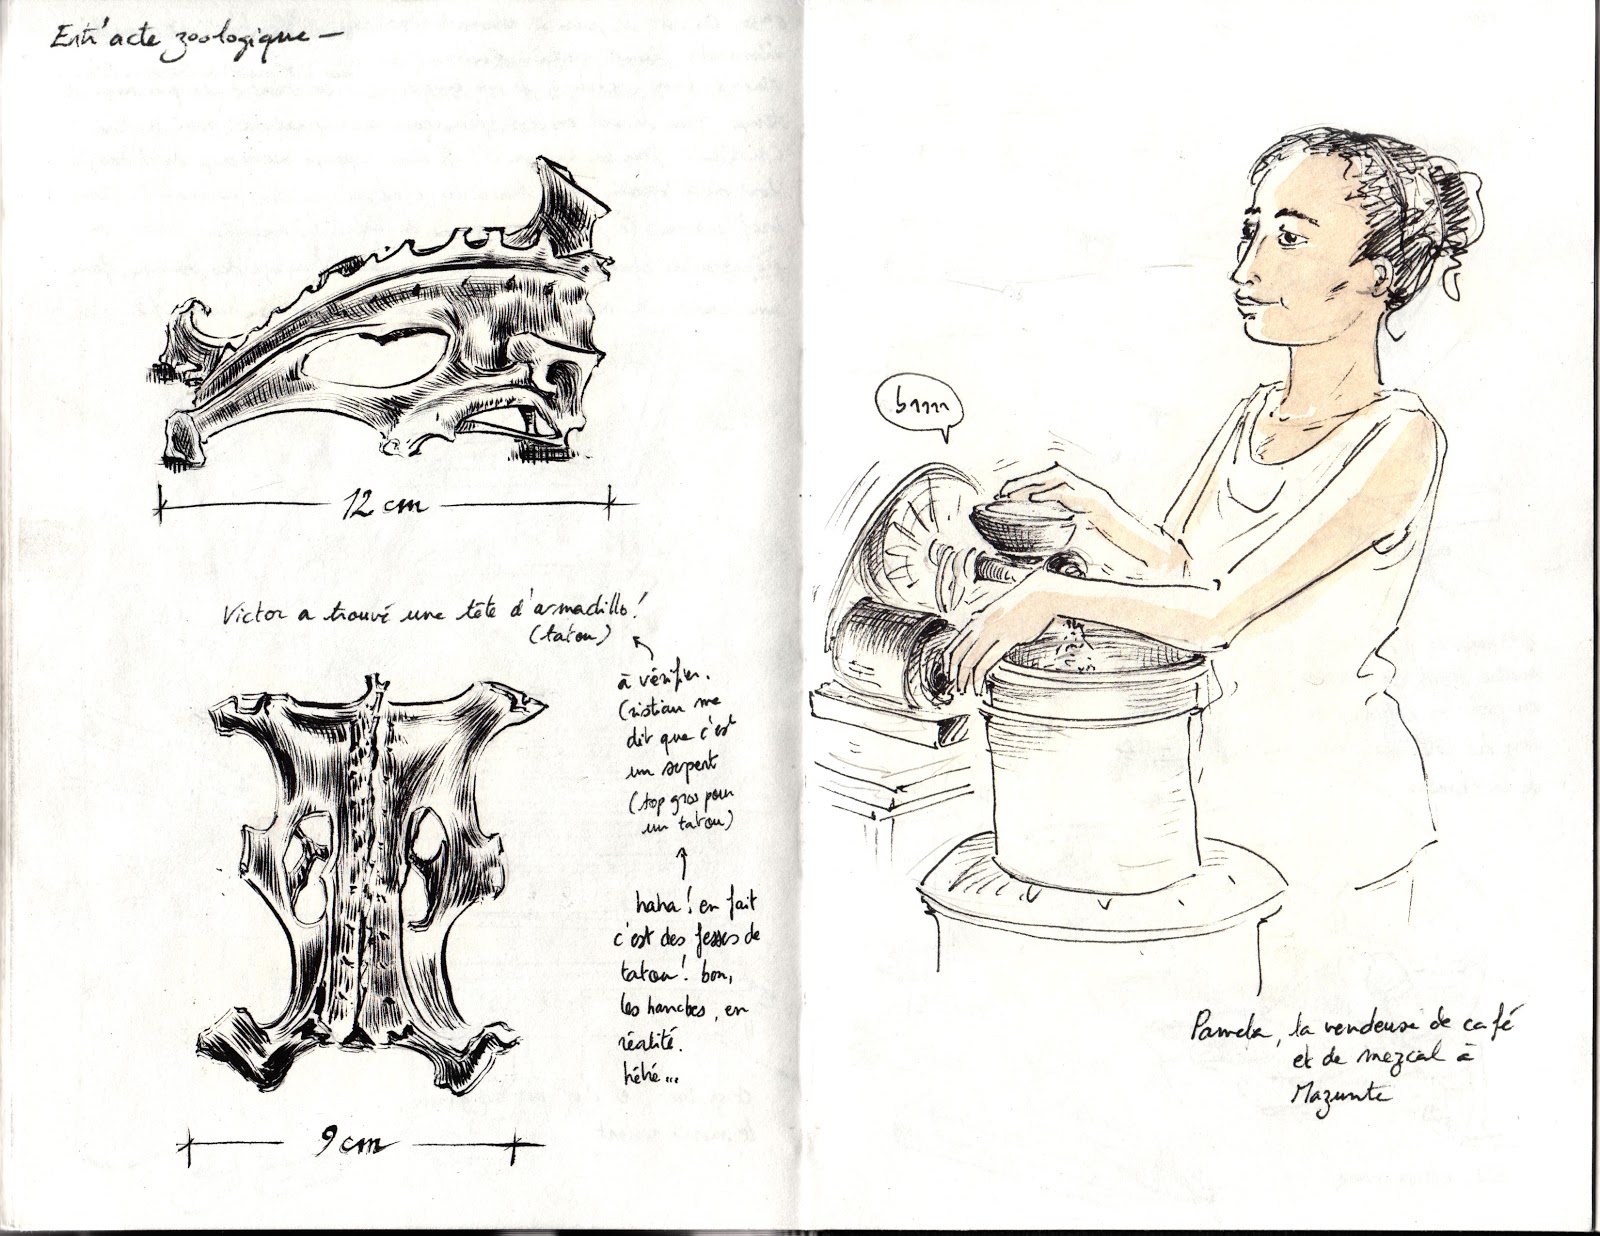 Entr'acte zoologique —
12 cm
Victor a trouvé une tête d'armadillo!
(tatou)
à vérifier.
Cristian me
dit que c'est
un serpent
(trop gros pour
un tatou)
haha! en fait
c'est des fesses de
tatou! bon,
les hanches, en
réalité.
héhé...
9 cm
brrrr
Pamela, la vendeuse de café
et de mezcal à
Mazunte